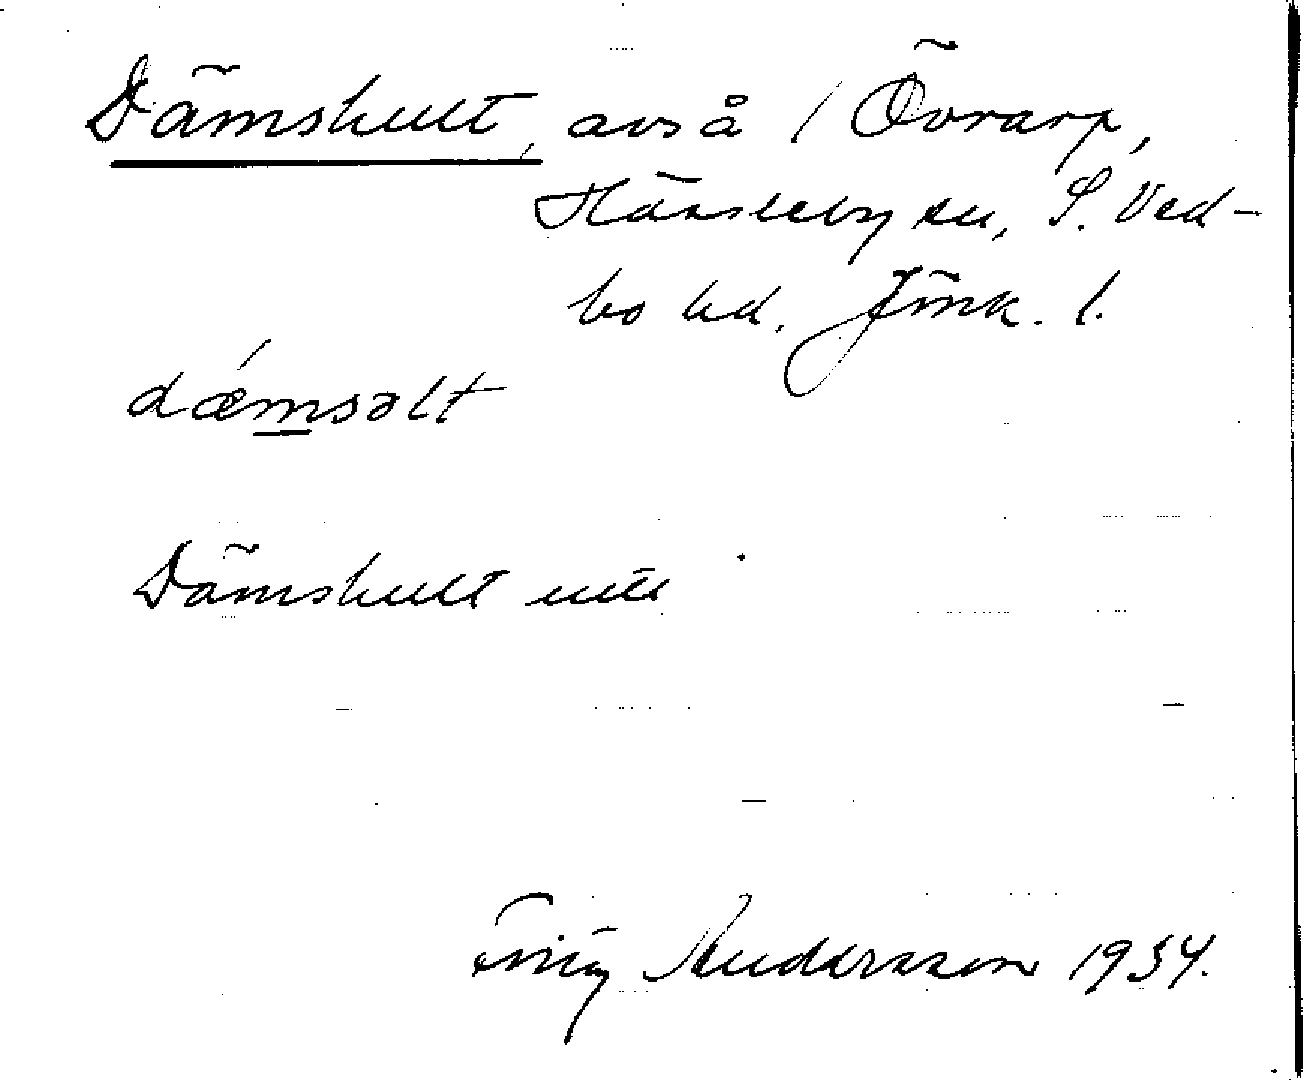 Dämshult, avs å / Övrarp,
Hässleby sn, S. Ved-
bo hd. Jönk. l.
dǽmsəlt
Dämshult
Frity Andersson 1934.